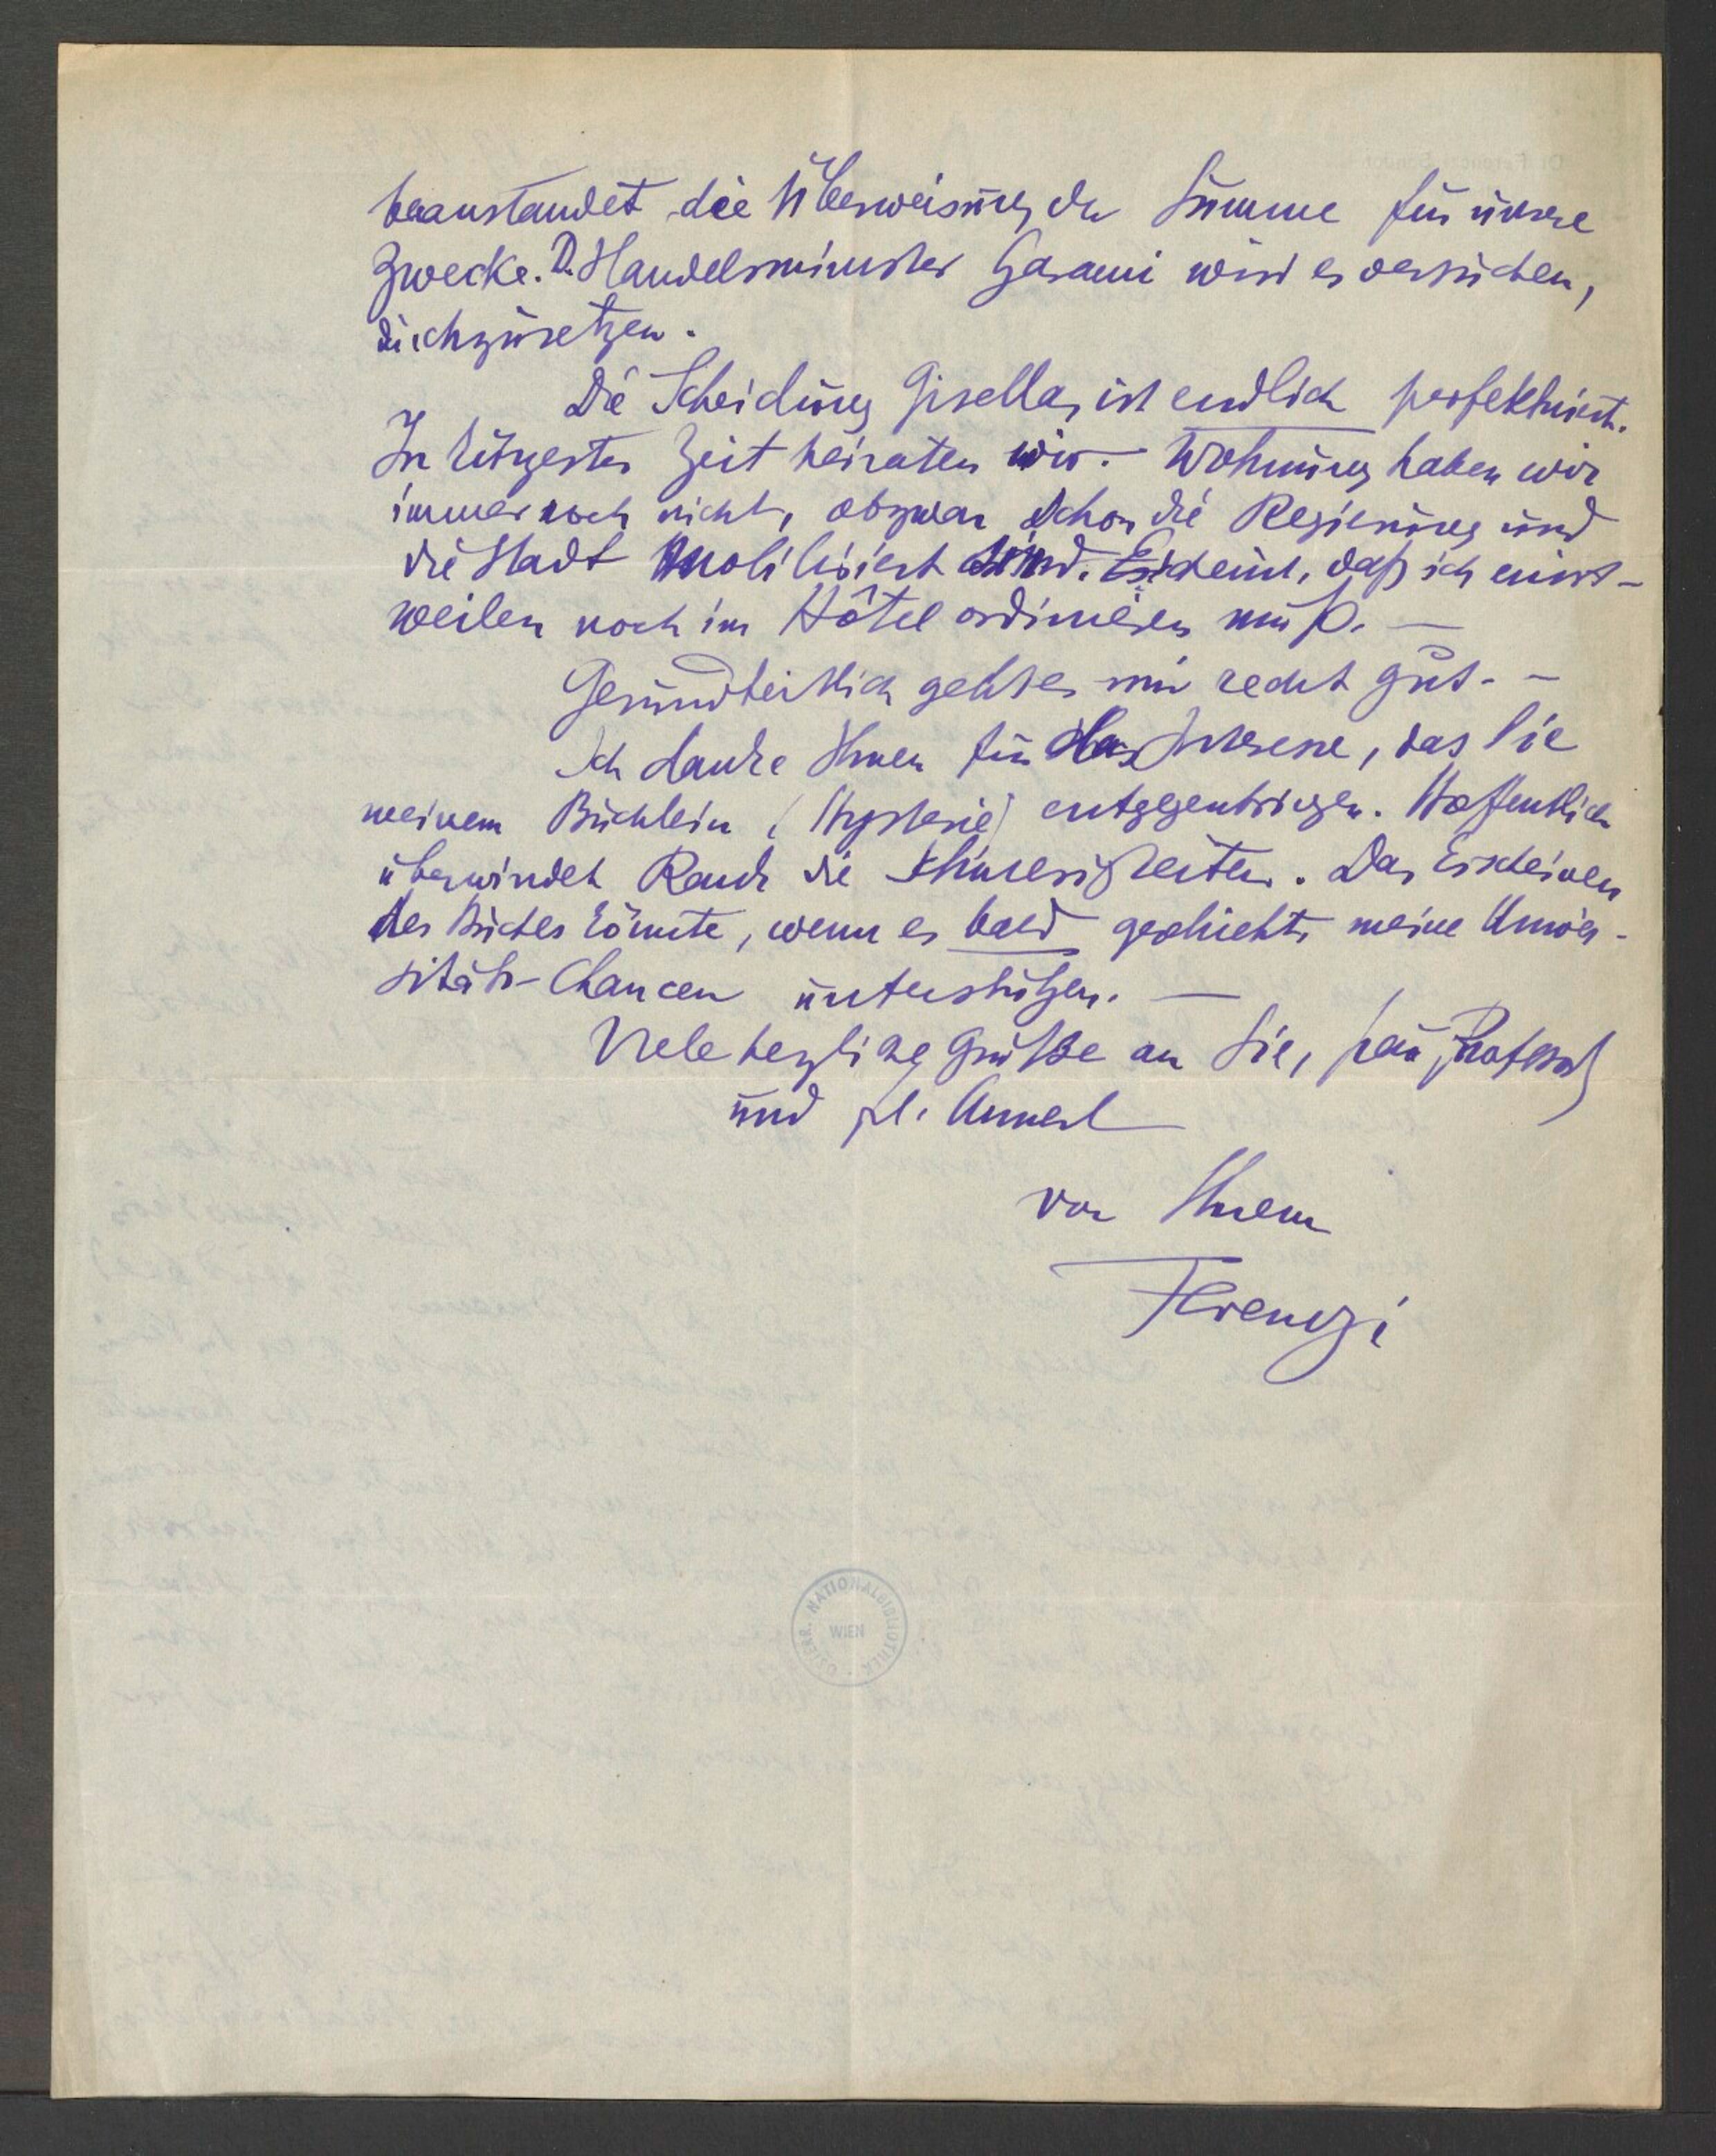 beanstandet die Überweisung der Summe für unsere
Zwecke. D. Handelsminister Garami wird es versuchen,
durchzusetzen.
Die Scheidung Gisellas ist endlich perfektuiert.
In kürzester Zeit heiraten wir. Wohnung haben wir
immer noch nicht, obzwar schon die Regierung und
die Stadt mobilisiert sind. Es scheint, daß ich einst-
weilen noch im Hôtel ordinieren muß. —
Gesundheitlich geht es mir recht gut. –
Ich danke Ihnen für das Interesse, das Sie
meinem Büchlein (Hysterie) entgegenbringen. Hoffentlich
überwindet Rank die Schwierigkeiten. Das Erscheinen
des Buches könnte, wenn es bald geschieht, meine Univer-
sitäts-Chancen unterstützen. —
Viele herzliche Grüße an Sie, Frau Professor
und Frl. Annerl
von Ihrem
Ferenczi
ÖSTERR. NATIONALBIBLIOTHEK
WIEN